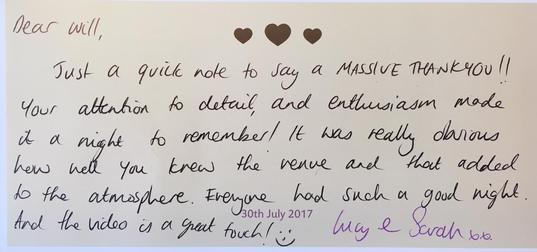 Dear Will,
Just a quick note to say a MASSIVE THANKYOU!!
Your attention to detail, and enthusiasm made
it a night to remember! It was really obvious
how well you knew the venue and that added
to the atmosphere. Everyone had such a good night.
30th July 2017
And the video is a great touch! :) Lucy & Sarah xx